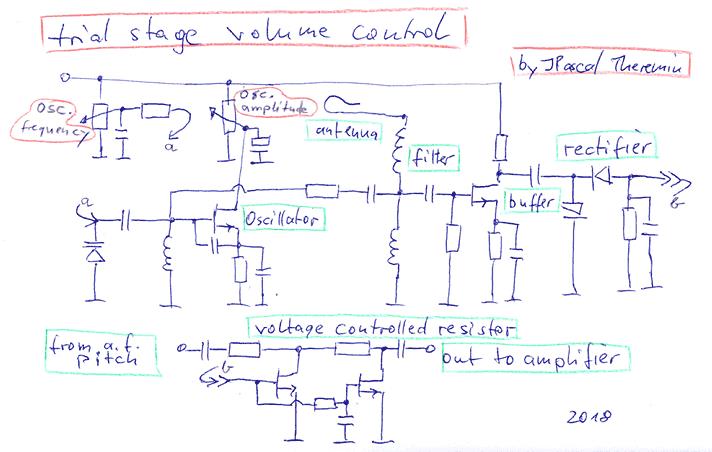 trial stage volume control
by JPascal Theremin
osc.
frequency
osc.
amplitude
antenna
filter
rectifier
a
a
Oscillator
buffer
b
voltage controlled resistor
from a.f.
pitch
b
out to amplifier
2018